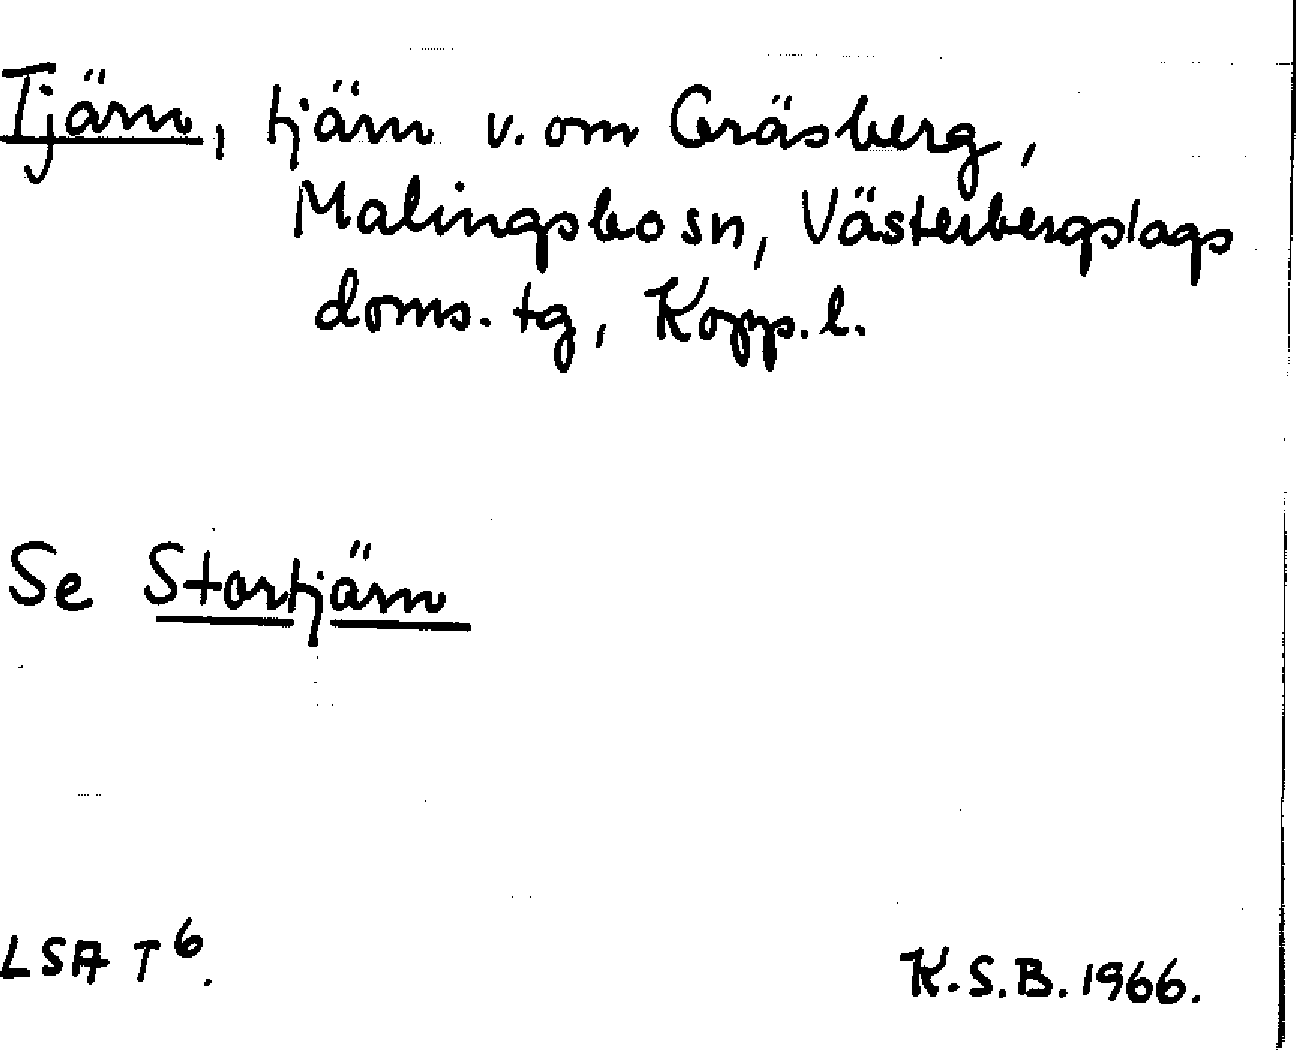 Tjärn, tjärn v. om Gräsberg,
Malingsbo sn, Västerbergslags
doms. tg, Kopp. l.
Se Stortjärn
LSA T 6.
K.S.B. 1966.